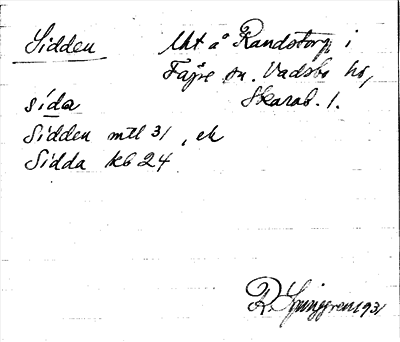 Sidden lht å Randstorp i
Fägre sn. Vadsbo hd,
Skarab. l.
sída
Sidden mtl 31, ek
Sidda kb 24
R. Ljunggren 1931